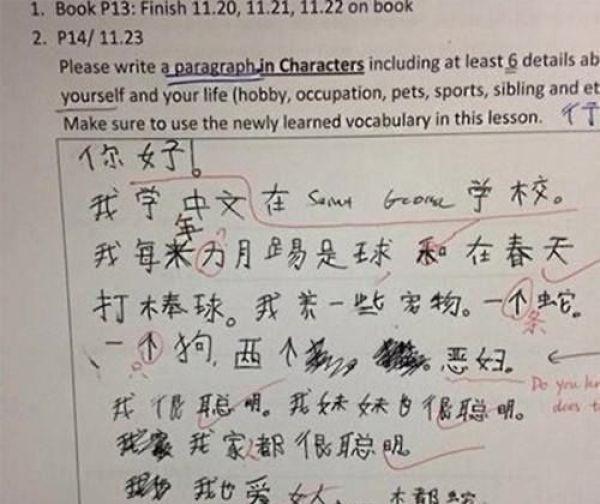 1. Book P13: Finish 11.20, 11.21, 11.22 on book
2. P14/ 11.23
Please write a paragraph in Characters including at least 6 details ab
yourself and your life (hobby, occupation, pets, sports, sibling and et
Make sure to use the newly learned vocabulary in this lesson.
你好!
我学中文在 Saint George 学校。
年
我每 月踢 球 和在春天
打棒球。我养一些宠物。一个蛇。
条
一个狗, 两个 。恶妇。
Do you kn
does t
我很聪明。我妹妹也很聪明。
我家人都很聪明。
我也爱女人。